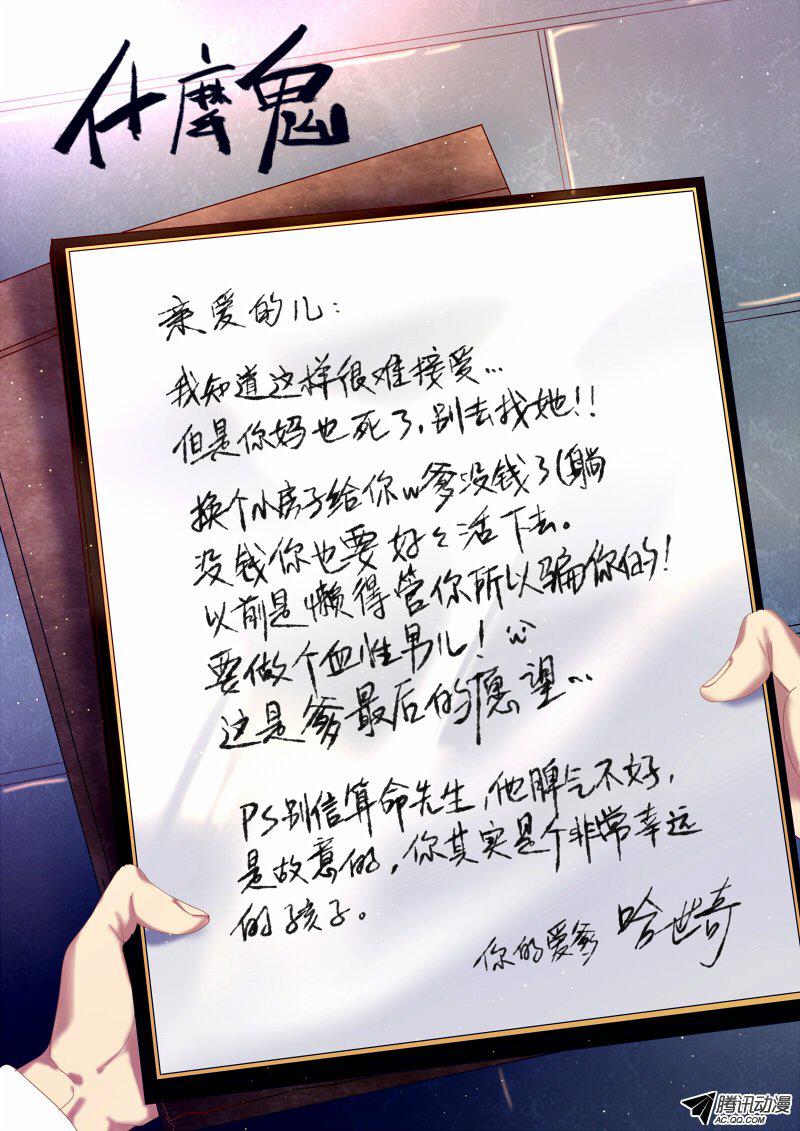 什麼鬼
亲爱的儿：
我知道这样很难接爱...
但是你妈也死了，别去找她！！
换个小房子给你w爹没钱了(躺
没钱你也要好々活下去。
以前是懒得管你所以骗你的！
要做个血性男儿！
这是爹最后的愿望...
PS别信算命先生，他脾气不好，
是故意的，你其实是个非常幸远
的孩子。
你的爱爹 哈世奇
腾讯动漫
AC.QQ.COM